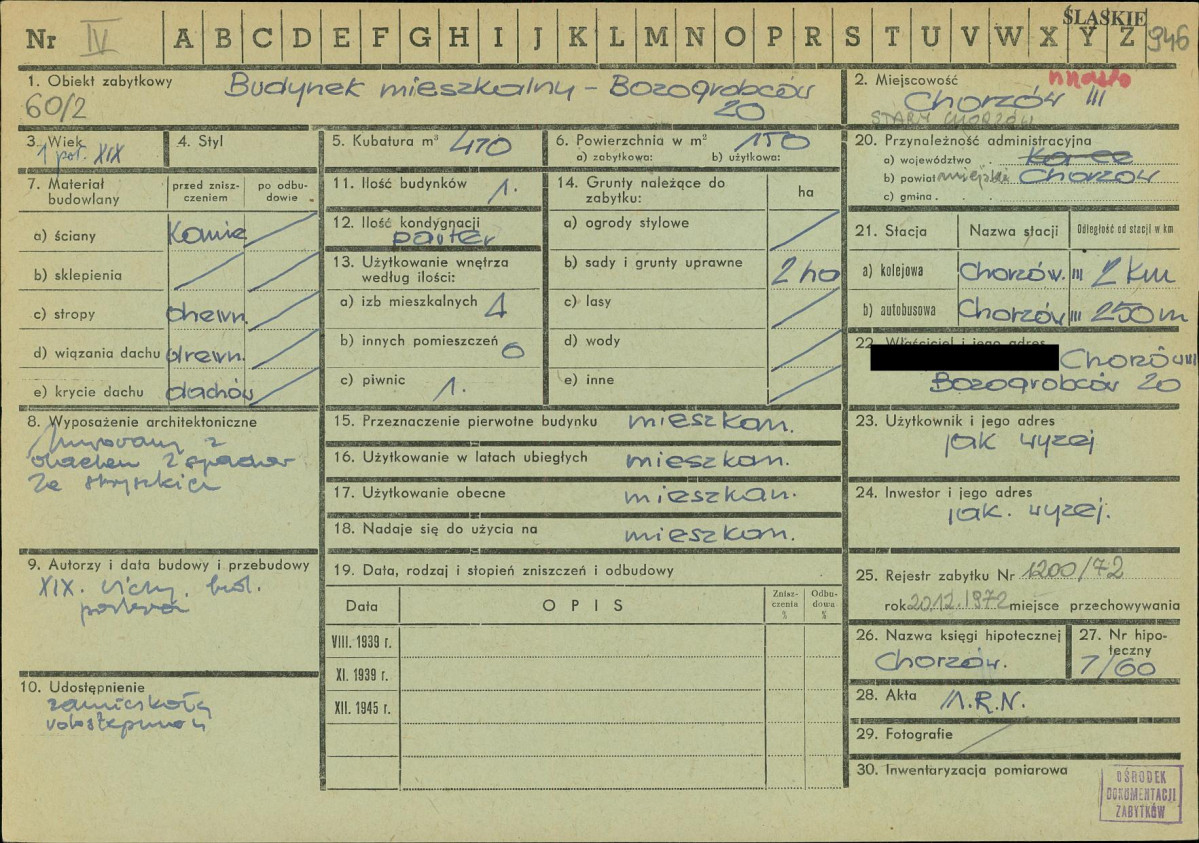 ŚLĄSKIE
Nr IV A B C D E F G H I J K L M N O P R S T U V W X Y Z 946
1. Obiekt zabytkowy Budynek mieszkalny – Bożogrobców
60/2 20
2. Miejscowość miasto
Chorzów III
STARY CHORZÓW
3. Wiek
1 poł. XIX
4. Styl
5. Kubatura m³ 470
6. Powierzchnia w m² 150
a) zabytkowa: b) użytkowa:
20. Przynależność administracyjna
a) województwo
b) powiat miejski Chorzów
c) gmina
7. Materiał budowlany
przed znisz-
czeniem
po odbu-
dowie
a) ściany kamie
b) sklepienia
c) stropy drewn.
d) wiązania dachu drewn.
e) krycie dachu dachów
11. Ilość budynków 1.
12. Ilość kondygnacji
parter
13. Użytkowanie wnętrza
według ilości:
a) izb mieszkalnych 4
b) innych pomieszczeń 0
c) piwnic 1.
14. Grunty należące do
zabytku: ha
a) ogrody stylowe
b) sady i grunty uprawne 2 ha
c) lasy
d) wody
e) inne
21. Stacja Nazwa stacji Odległość od stacji w km
a) kolejowa Chorzów III 2 km
b) autobusowa Chorzów III 250 m
22. Właściciel i jego adres
Chorzów III
Bożogrobców 20
8. Wyposażenie architektoniczne
Murowany z
dachem
ze
15. Przeznaczenie pierwotne budynku mieszkan.
16. Użytkowanie w latach ubiegłych mieszkan.
17. Użytkowanie obecne mieszkan.
18. Nadaje się do użycia na mieszkan.
23. Użytkownik i jego adres
jak wyżej
24. Inwestor i jego adres
jak. wyżej.
9. Autorzy i data budowy i przebudowy
XIX.
19. Data, rodzaj i stopień zniszczeń i odbudowy
Data OPIS
Znisz-
czenia
%
Odbu-
dowa
%
VIII. 1939 r.
XI. 1939 r.
XII. 1945 r.
25. Rejestr zabytku Nr 1200/72
rok 20.12.1972 miejsce przechowywania
26. Nazwa księgi hipotecznej
Chorzów.
27. Nr hipo-
teczny
7/60
10. Udostępnienie
28. Akta
29. Fotografie
30. Inwentaryzacja pomiarowa
OŚRODEK
DOKUMENTACJI
ZABYTKÓW